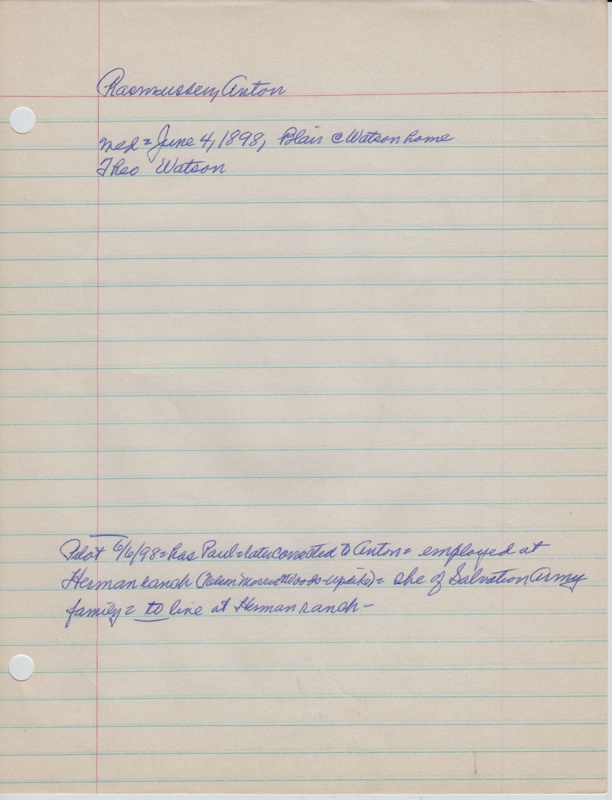 Rasmussen, Anton
med = June 4, 1898, Blair @ Watson home
Theo Watson
Pilot 6/6/98 = has Paul = later corrected to Anton = employed at
Herman ranch = she of Salvation Army
family = to live at Herman ranch -